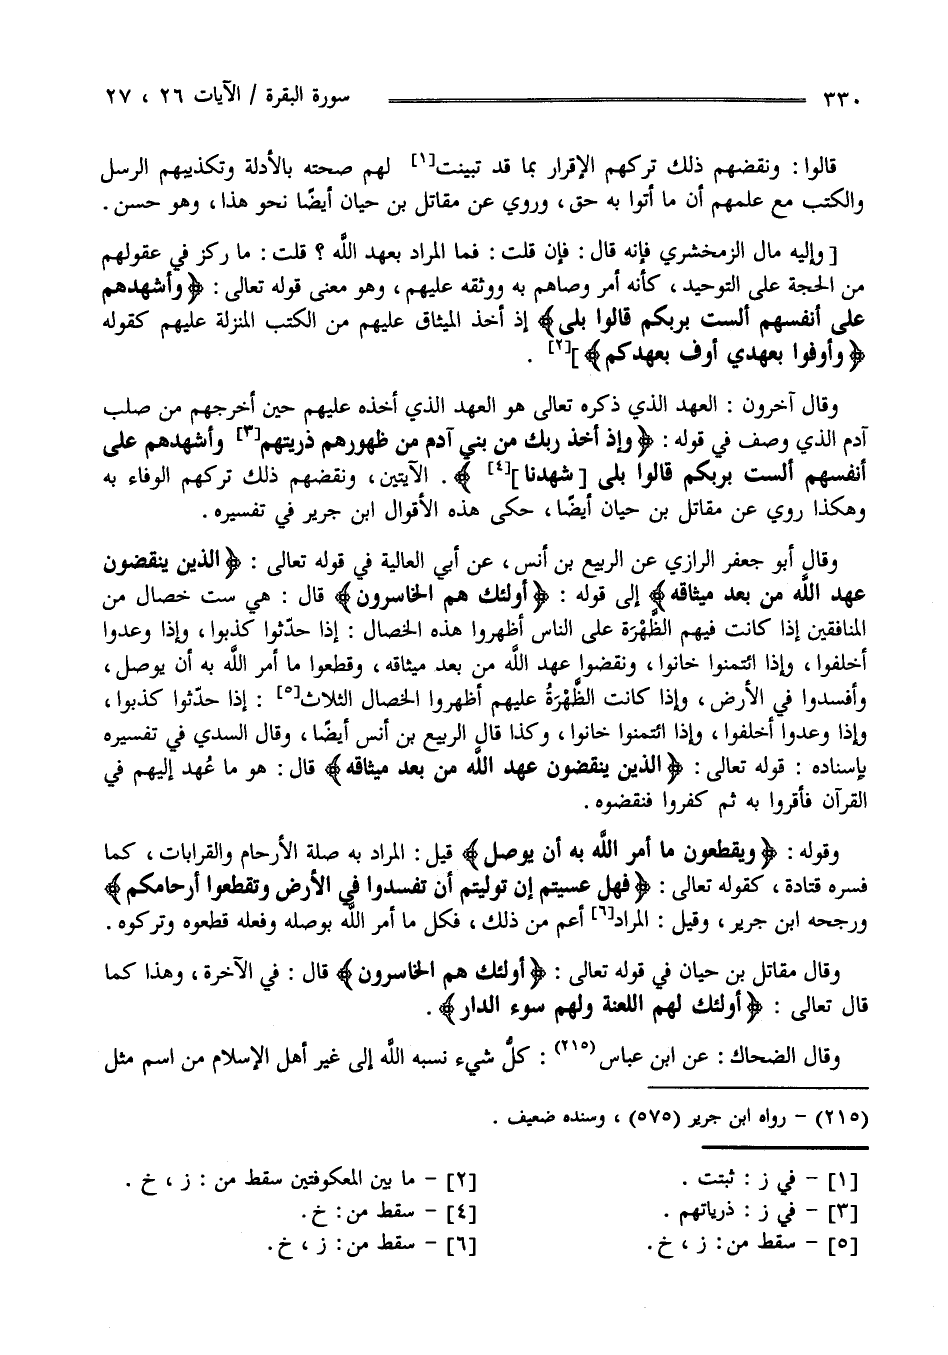 ٣٣٠ سورة البقرة / الآيات ٢٦ ، ٢٧
قالوا : ونقضهم ذلك تركهم الإقرار بما قد تبينت[١] لهم صحته بالأدلة وتكذيبهم الرسل
والكتب مع علمهم أن ما أتوا به حق ، وروي عن مقاتل بن حيان أيضًا نحو هذا ، وهو حسن .
[ وإليه مال الزمخشري فإنه قال : فإن قلت : فما المراد بعهد اللَّه ؟ قلت : ما ركز في عقولهم
من الحجة على التوحيد ، كأنه أمر وصاهم به ووثقه عليهم ، وهو معنى قوله تعالى : ﴿ وأشهدهم
على أنفسهم ألست بربكم قالوا بلى ﴾ إذ أخذ الميثاق عليهم من الكتب المنزلة عليهم كقوله
﴿ وأوفوا بعهدي أوف بعهدكم ﴾ ][٢] .
وقال آخرون : العهد الذي ذكره تعالى هو العهد الذي أخذه عليهم حين أخرجهم من صلب
آدم الذي وصف في قوله : ﴿ وإذ أخذ ربك من بني آدم من ظهورهم ذريتهم[٣] وأشهدهم على
أنفسهم ألست بربكم قالوا بلى [ شهدنا ][٤] ﴾ . الآيتين ، ونقضهم ذلك تركهم الوفاء به
وهكذا روي عن مقاتل بن حيان أيضًا ، حكى هذه الأقوال ابن جرير في تفسيره .
وقال أبو جعفر الرازي عن الربيع بن أنس ، عن أبي العالية في قوله تعالى : ﴿ الذين ينقضون
عهد اللَّه من بعد ميثاقه ﴾ إلى قوله : ﴿ أولئك هم الخاسرون ﴾ قال : هي ست خصال من
المنافقين إذا كانت فيهم الظَّهْرَة على الناس أظهروا هذه الخصال : إذا حدّثوا كذبوا ، وإذا وعدوا
أخلفوا ، وإذا ائتمنوا خانوا ، ونقضوا عهد اللَّه من بعد ميثاقه ، وقطعوا ما أمر اللَّه به أن يوصل ،
وأفسدوا في الأرض ، وإذا كانت الظَّهْرَةُ عليهم أظهروا الخصال الثلاث[٥] : إذا حدّثوا كذبوا ،
وإذا وعدوا أخلفوا ، وإذا ائتمنوا خانوا ، وكذا قال الربيع بن أنس أيضًا ، وقال السدي في تفسيره
بإسناده : قوله تعالى : ﴿ الذين ينقضون عهد اللَّه من بعد ميثاقه ﴾ قال : هو ما عُهد إليهم في
القرآن فأقروا به ثم كفروا فنقضوه .
وقوله : ﴿ ويقطعون ما أمر اللَّه به أن يوصل ﴾ قيل : المراد به صلة الأرحام والقرابات ، كما
فسره قتادة ، كقوله تعالى : ﴿ فهل عسيتم إن توليتم أن تفسدوا في الأرض وتقطعوا أرحامكم ﴾
ورجحه ابن جرير ، وقيل : المراد[٦] أعم من ذلك ، فكل ما أمر اللَّه بوصله وفعله قطعوه وتركوه .
وقال مقاتل بن حيان في قوله تعالى : ﴿ أولئك هم الخاسرون ﴾ قال : في الآخرة ، وهذا كما
قال تعالى : ﴿ أولئك لهم اللعنة ولهم سوء الدار ﴾ .
وقال الضحاك : عن ابن عباس(٢١٥) : كلُّ شيء نسبه اللَّه إلى غير أهل الإسلام من اسم مثل
(٢١٥) - رواه ابن جرير (٥٧٥) ، وسنده ضعيف .
[١] - في ز : ثبتت . [٢] - ما بين المعكوفتين سقط من : ز ، خ .
[٣] - في ز : ذرياتهم . [٤] - سقط من : خ .
[٥] - سقط من : ز ، خ . [٦] - سقط من : ز ، خ .